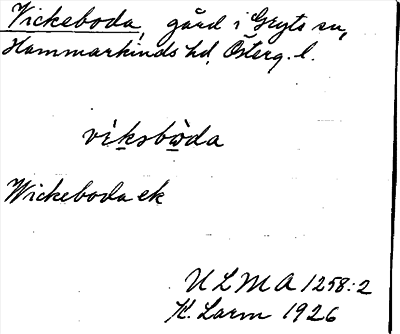 Vickeboda, gård i Gryts sn,
Hammarkinds hd, Österg. l.
víksbòda
Wickeboda ek
ULMA 1258:2
K. Larm 1926